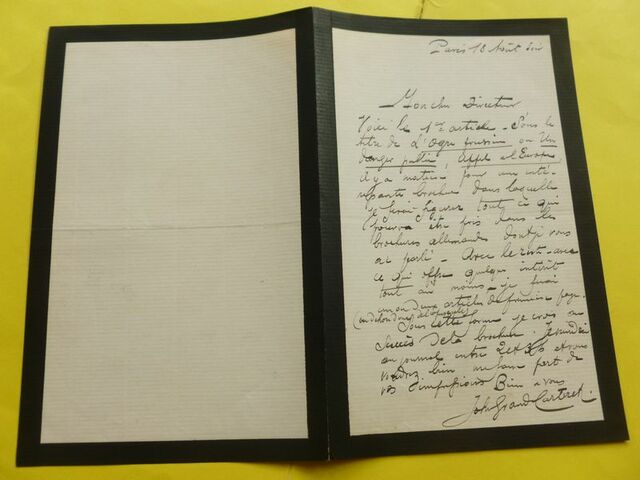 Paris 18 Août soir
Mon cher Directeur
Voici le 1er article - Sous le
titre de L'Ogre prussien ou Un
danger public, Appel à l'Europe
il y a matière pour une inté-
ressante brochure dans laquelle
je ferai figurer tout ce qui
pourra être pris dans les
brochures allemandes dont je vous
ai parlé - Avec le reste - avec
ce qui offre quelque intérêt
tout au moins - je ferai
un ou deux articles de première page.
(en dehors de)
Sous cette forme je crois au
succès de la brochure. Je viendrai
au journal entre 2 et 3h et vous
voudrez bien me faire part de
vos impressions Bien à vous
John Grand-Carteret.